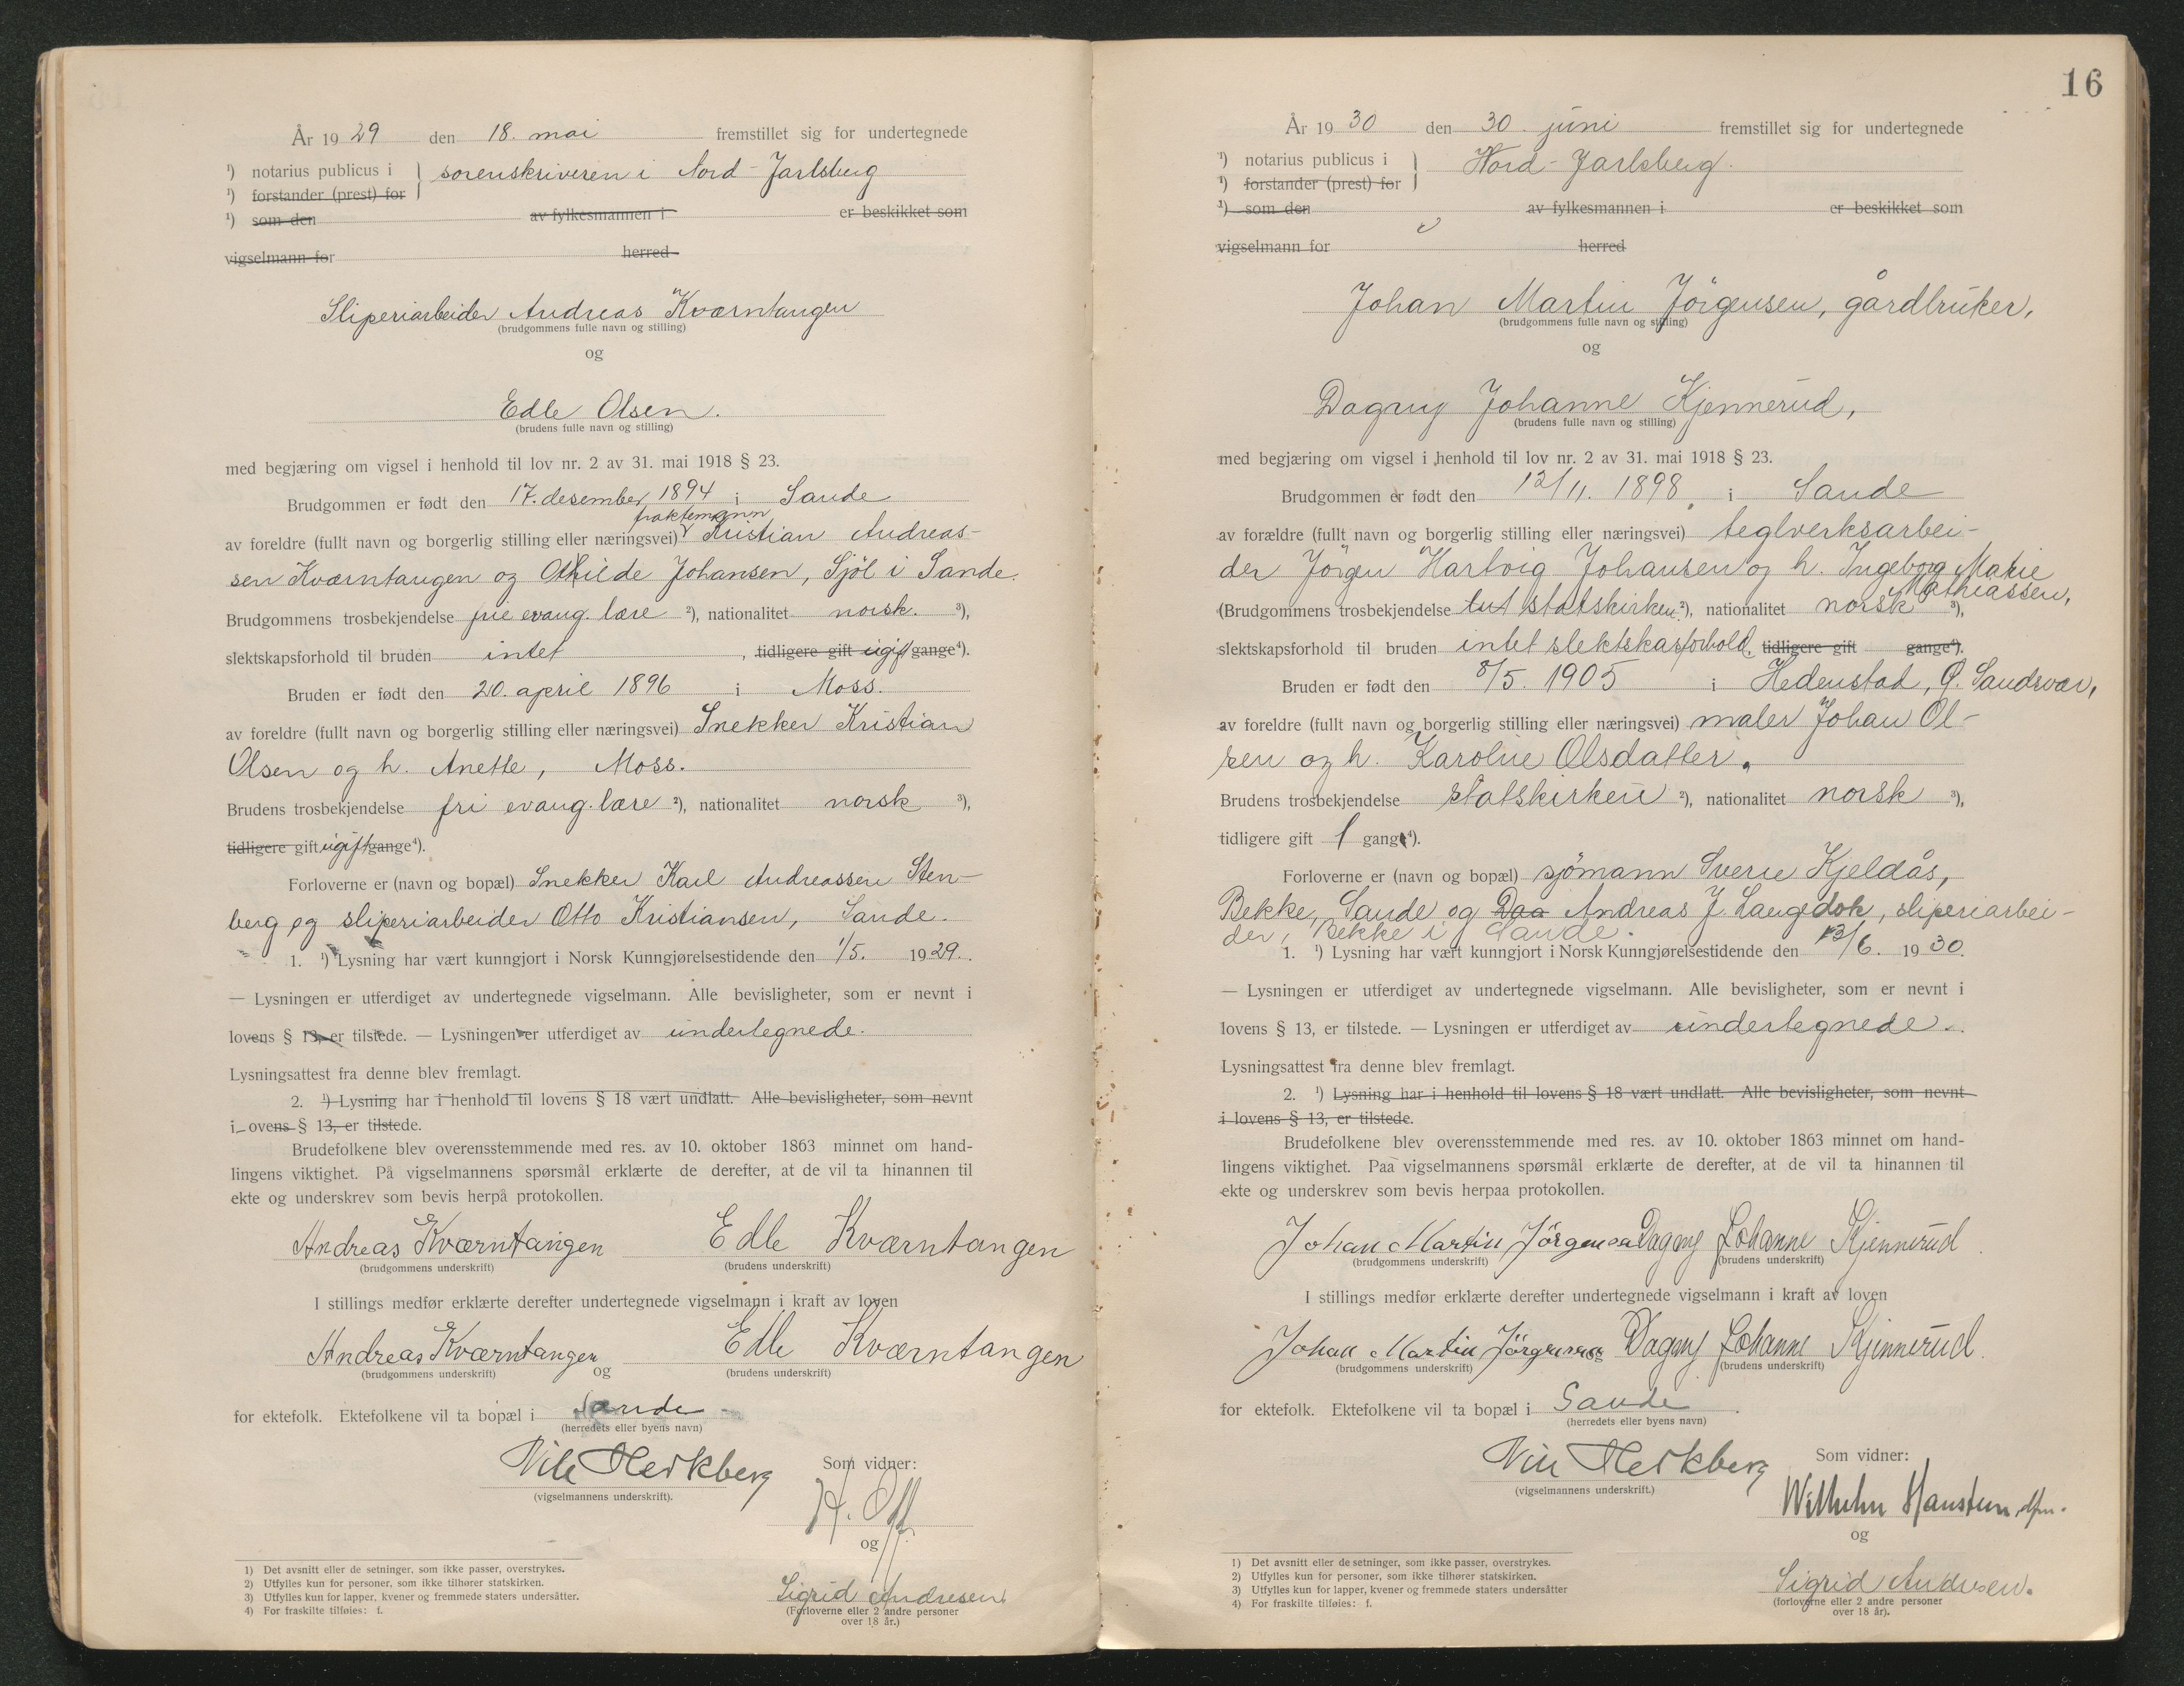 År 1929 den 18. mai fremstillet sig for undertegnede
¹) notarius publicus i } sorenskriveren i Nord-Jarlsberg
¹) forstander (prest) for
¹) som den av fylkesmannen i er beskikket som
vigselmann for herred
Sliperiarbeider Andreas Kværntangen
(brudgommens fulle navn og stilling)
og
Edle Olsen.
(brudens fulle navn og stilling)
med begjæring om vigsel i henhold til lov nr. 2 av 31. mai 1918 § 23.
Brudgommen er født den 17. desember 1894 i Sande
fraktemann
av foreldre (fullt navn og borgerlig stilling eller næringsvei) Kristian Andreas-
sen Kværntangen og Othilde Johansen, Sjøl i Sande.
Brudgommens trosbekjendelse frie evang. lære ²), nationalitet norsk. ³),
slektskapsforhold til bruden intet, tidligere gift ugift gange⁴).
Bruden er født den 20. april 1896 i Moss.
av foreldre (fullt navn og borgerlig stilling eller næringsvei) Snekker Kristian
Olsen og h. Anette, Moss.
Brudens trosbekjendelse fri evang. lære ²), nationalitet norsk ³),
tidligere gift ugift gange⁴).
Forloverne er (navn og bopæl) Snekker Karl Andreassen Sten-
berg og sliperiarbeider Otto Kristiansen, Sande.
1. ¹) Lysning har vært kunngjort i Norsk Kunngjørelsestidende den 1/5. 1929.
— Lysningen er utferdiget av undertegnede vigselmann. Alle bevisligheter, som er nevnt i
lovens § 13, er tilstede. — Lysningen er utferdiget av undertegnede.
Lysningsattest fra denne blev fremlagt.
2. ¹) Lysning har i henhold til lovens § 18 vært undlatt. Alle bevisligheter, som nevnt
i ovens § 13, er tilstede.
Brudefolkene blev overensstemmende med res. av 10. oktober 1863 minnet om hand-
lingens viktighet. På vigselmannens spørsmål erklærte de derefter, at de vil ta hinannen til
ekte og underskrev som bevis herpå protokollen.
Andreas Kværntangen Edle Kværntangen
(brudgommens underskrift) (brudens underskrift)
I stillings medfør erklærte derefter undertegnede vigselmann i kraft av loven
Andreas Kværntangen og Edle Kværntangen
(brudgommens underskrift) (brudens underskrift)
for ektefolk. Ektefolkene vil ta bopæl i Sande
(herredets eller byens navn)
Nils Herkberg
(vigselmannens underskrift).
Som vidner:
og
Sigrid Andresen
(Forloverne eller 2 andre personer
over 18 år.)
1) Det avsnitt eller de setninger, som ikke passer, overstrykes.
2) Utfylles kun for personer, som ikke tilhører statskirken.
3) Utfylles kun for lapper, kvener og fremmede staters undersåtter.
4) For fraskilte tilføies: f.
16
År 1930 den 30. juni fremstillet sig for undertegnede
¹) notarius publicus i } Nord-Jarlsberg.
¹) forstander (prest) for
¹) som den av fylkesmannen i er beskikket som
vigselmann for herred
Johan Martin Jörgensen, gårdbruker,
(brudgommens fulle navn og stilling)
og
Dagny Johanne Kjennerud,
(brudens fulle navn og stilling)
med begjæring om vigsel i henhold til lov nr. 2 av 31. mai 1918 § 23.
Brudgommen er født den 12/11. 1898, i Sande
av forældre (fullt navn og borgerlig stilling eller næringsvei) teglverksarbei-
der Jörgen Hartvig Johansen og h. Ingeborg Marie
Mathiassen,
(Brudgommens trosbekjendelse statskirken ²), nationalitet norsk ³),
slektskapsforhold til bruden intet slektskasforhold, tidligere gift gange⁴).
Bruden er født den 8/5. 1905 i Hedenstad, Ø. Sandsvær,
av foreldre (fullt navn og borgerlig stilling eller næringsvei) maler Johan Ol-
sen og h. Karoline Olsdatter.
Brudens trosbekjendelse statskirken ²), nationalitet norsk ³),
tidligere gift 1 gang⁴).
Forloverne er (navn og bopæl) sjömann Sverre Kjeldås,
Bekke, Sande og Daa Andreas J. Langedok, sliperiarbei-
der, Bekke i Sande.
1. ¹) Lysning har vært kunngjort i Norsk Kunngjørelsestidende den 13/6. 1930.
— Lysningen er utferdiget av undertegnede vigselmann. Alle bevisligheter, som er nevnt i
lovens § 13, er tilstede. — Lysningen er utferdiget av undertegnede.
Lysningsattest fra denne blev fremlagt.
2. ¹) Lysning har i henhold til lovens § 18 vært undlatt. Alle bevisligheter, som nevnt
i lovens § 13, er tilstede.
Brudefolkene blev overensstemmende med res. av 10. oktober 1863 minnet om hand-
lingens viktighet. Paa vigselmannens spørsmål erklærte de derefter, at de vil ta hinannen til
ekte og underskrev som bevis herpaa protokollen.
Johan Martin Jörgensen Dagny Johanne Kjennerud
(brudgommens underskrift) (brudens underskrift)
I stillings medfør erklærte derefter undertegnede vigselmann i kraft av loven
Johan Martin Jörgensen og Dagny Johanne Kjennerud.
(brudgommens underskrift) (brudens underskrift)
for ektefolk. Ektefolkene vil ta bopæl i Sande.
(herredets eller byens navn)
Nils Herkberg
(vigselmannens underskrift.)
Som vidner:
Wilhelm
og
Sigrid Andresen.
(forloverne eller 2 andre personer
over 18 år).
1) Det avsnitt eller de setninger, som ikke passer, overstrykes.
2) Utfylles kun for personer, som ikke tilhører statskirken.
3) Utfylles kun for lapper, kvener og fremmede staters undersåtter
4) For fraskilte tilføies: f.